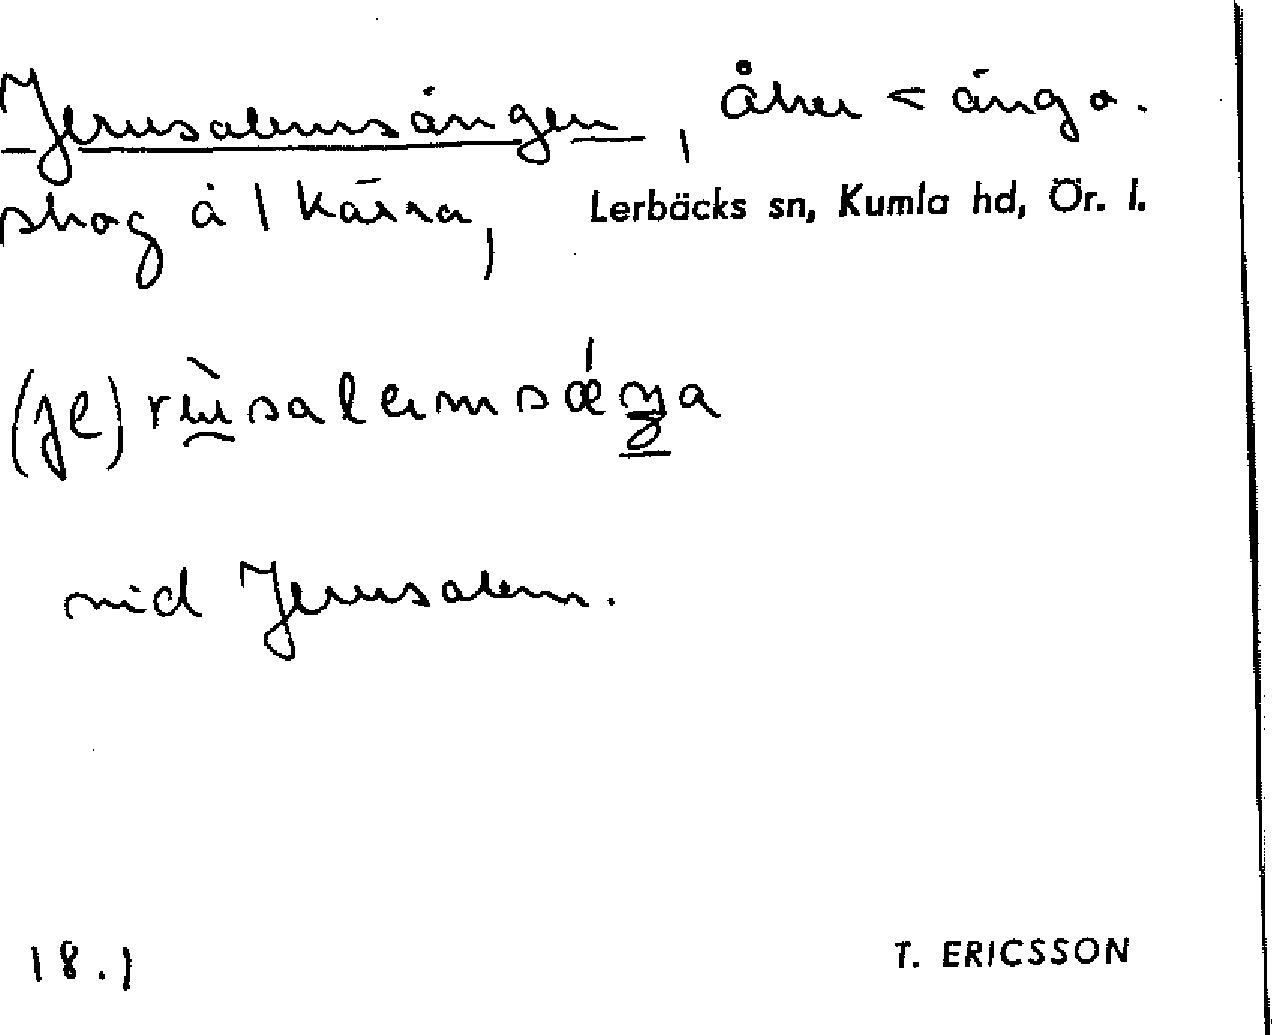 Jerusalemsängen, Åker < äng o.
skog å 1 Kärra, Lerbäcks sn, Kumla hd, Ör. l.
(je)rusalemsæŋa
vid Jerusalem.
18.1 T. ERICSSON